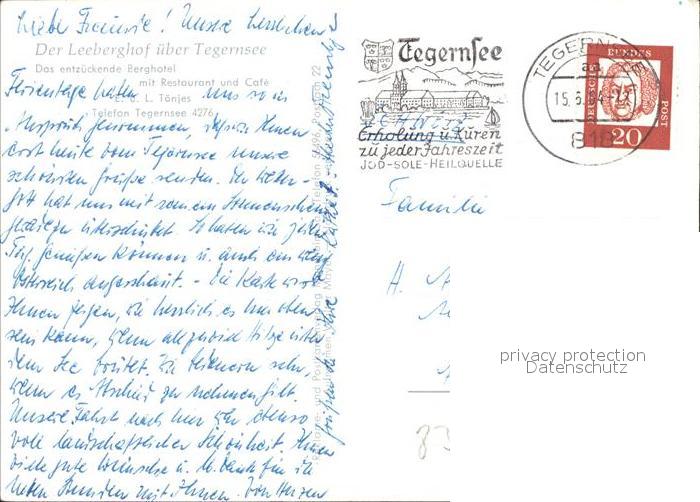 Liebe Freunde! Unsere herrlichen
Der Leeberghof über Tegernsee
Das entzückende Berghotel
mit Restaurant und Café
L. Tönjes
Telefon Tegernsee 4276
Ferientage haben uns so in
Anspruch genommen, daß wir Ihnen
erst heute vom Tegernsee unsere
schönsten Grüße senden. Der Wetter-
gott hat uns mit seinem Sonnenschein
überschüttet. So haben wir jeden
Tag genießen können u. auch ein wenig
Österreich angeschaut. - Die Karte wird
Ihnen zeigen, wie herrlich es hier oben
sein kann, wenn allzuviel Hitze über
dem See brütet. Wir bedauern sehr,
wenn es Abschied zu nehmen gilt.
Unsere Fahrt nach hier war ebenso
voll landschaftlicher Schönheit. Ihnen
viele gute Wünsche u. lb. Dank für die
netten Stunden mit Ihnen. Von Herzen
grüßen Sie Ihre
Tegernsee
Erholung u. Kuren
zu jeder Jahreszeit
JOD-SOLE-HEILQUELLE
TEGERNSEE
15.6.
818
DEUTSCHE BUNDES POST
20
Familie
H.
83
privacy protection
Datenschutz